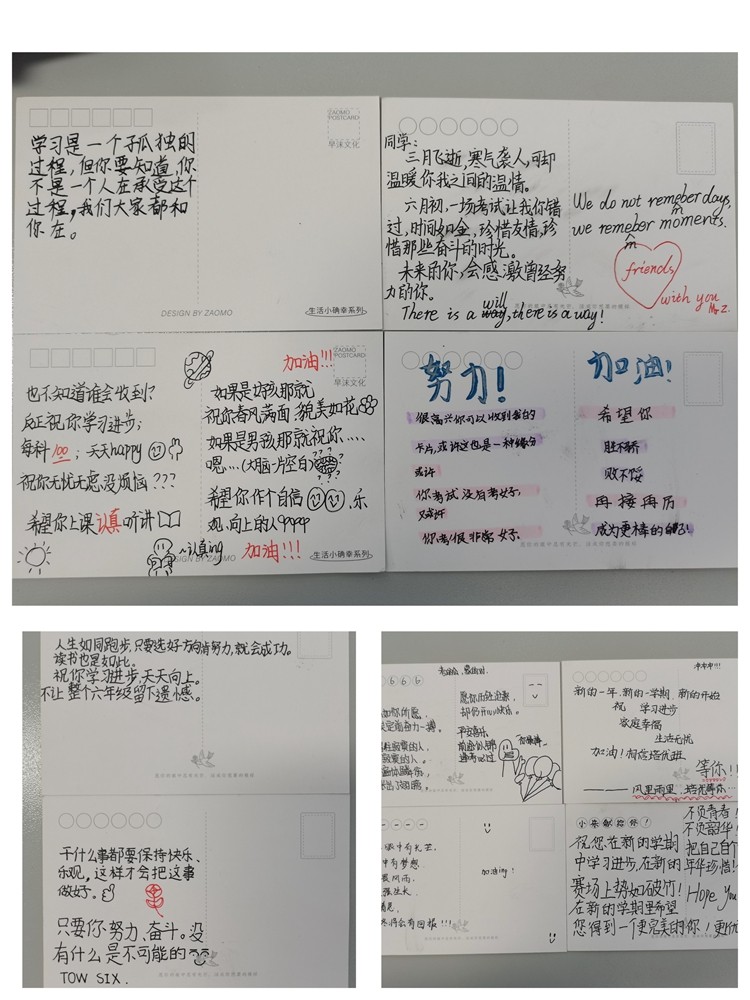 学习是一个孤独的
过程，但你要知道，你
不是一个人在承受这个
过程，我们大家都和
你在。
ZAOMO
POSTCARD
早沫文化
DESIGN BY ZAOMO
生活小确幸系列
同学：
三月飞逝，寒气袭人，可却
温暖你我之间的温情。
六月初，一场考试让我你错
过，时间如金，珍惜友情，珍
惜那些奋斗的时光。
未来的你，会感激曾经努
力的你。
There is a will, there is a way!
We do not remeber days,
m
we remeber moments.
m
friends
with you
也不知道谁会收到？
反正祝你学习进步；
每科100；天天happy
祝你无忧无虑没烦恼？？？
希望你上课认真听讲
~认真ing
DESIGN BY ZAOMO
加油!!!
ZAOMO
POSTCARD
早沫文化
如果是女孩那就
祝你春风满面，貌美如花
如果是男孩那就祝你....
嗯...(大脑一片空白)
希望你作个自信，乐
观、向上的人
加油!!!
生活小确幸系列
努力!
很高兴你可以收到我的
卡片，或许这也是一种缘分
或许
你考试没有考好，
又或许
你考很非常好，
加油!
希望你
胜不骄
败不馁
再接再厉
成为更棒的自己!
人生如同跑步，只要选好方向肯努力，就会成功。
读书也是如此。
祝你学习进步，天天向上。
不让整个六年级留下遗憾。
干什么事都要保持快乐、
乐观，这样才会把这事
做好。
只要你努力、奋斗。没
有什么是不可能的
TOW SIX.
愿你历经沧桑，
却仍开心快乐。
平安喜乐
新的一年，新的一学期，新的开始
祝 学习进步
家庭幸福
生活无忧
加油！相信培优班
等你!!
风里雨里，培优等你...
中有光芒，
中有梦想
风雨，
生长，
将会有回报!!!
加油ing!
祝您在新的学期
中学习进步，在新的
赛场上势如破竹！
在新的学期里希望
您得到一个更完美的你！更优
不负青春！
不负韶华！
把自己的
年华珍惜！
Hope You